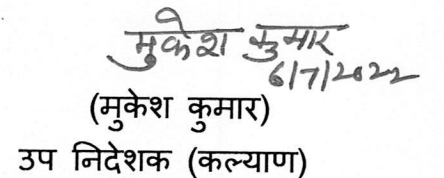 मुकेश कुमार
6/7/2022
(मुकेश कुमार)
उप निदेशक (कल्याण)